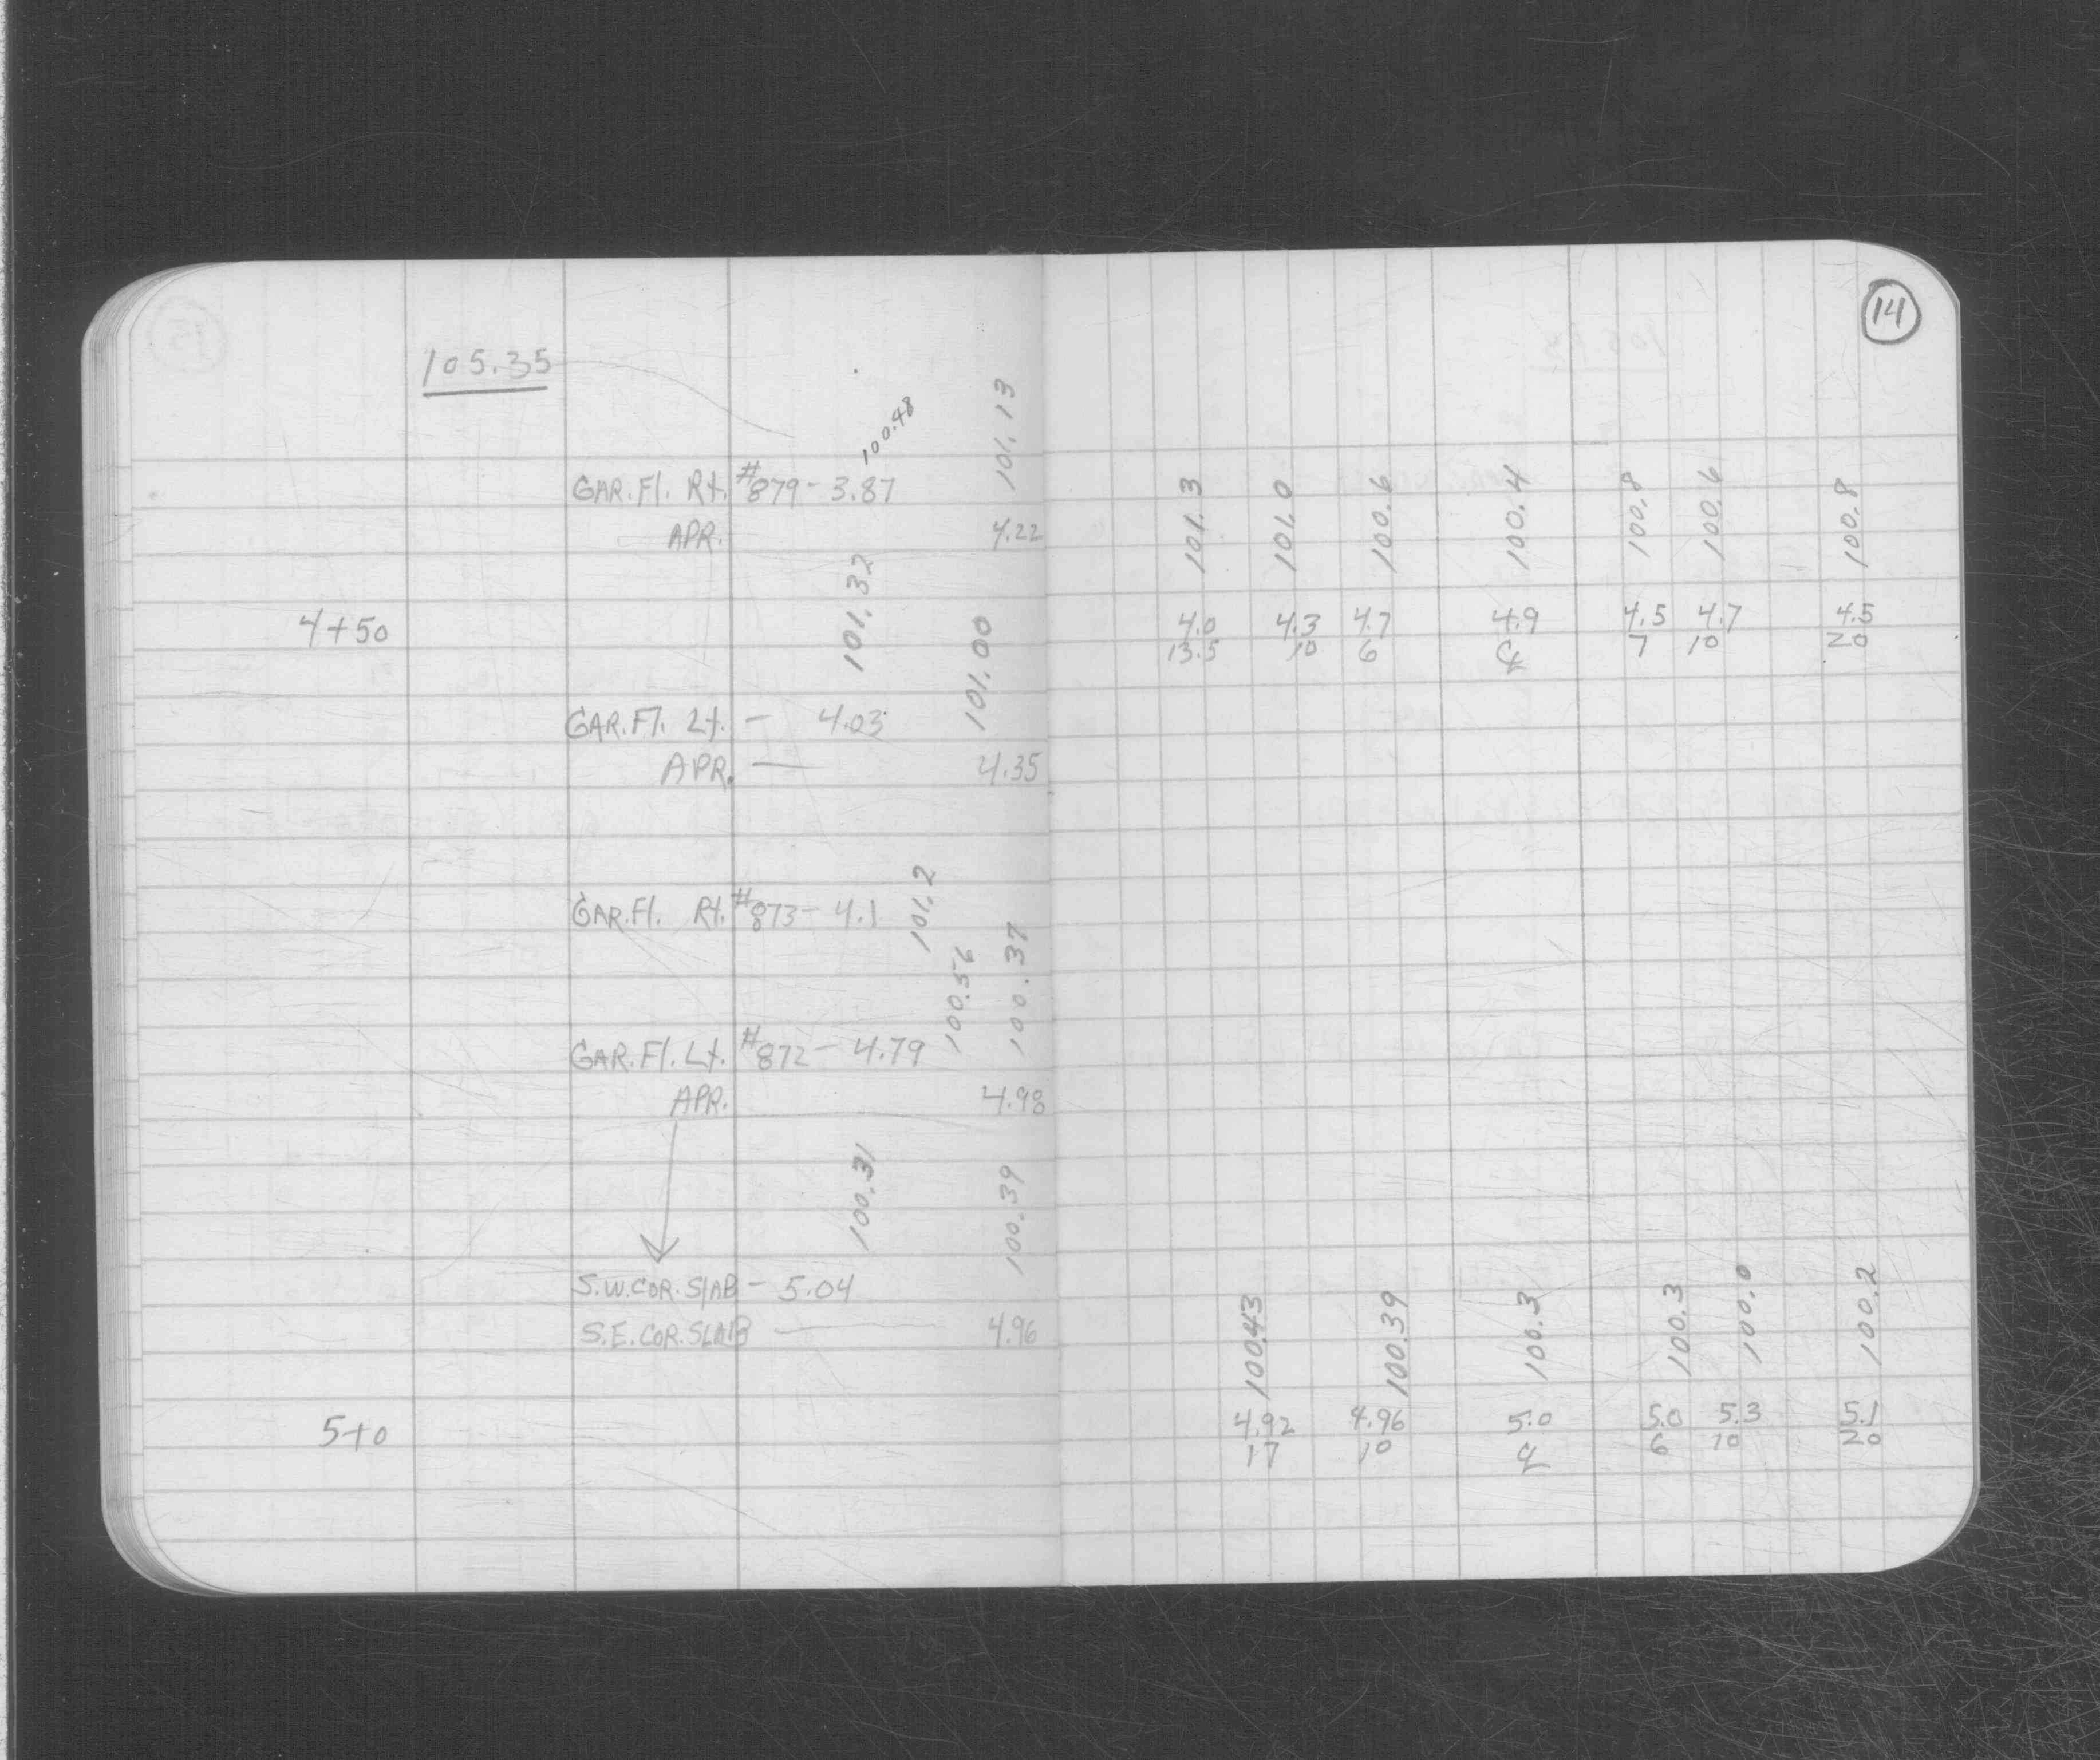 14
105.35
100.48
101.13
GAR.Fl. Rt. #879- 3.87
APR. 4.22
101.3 101.0 100.6 100.4 100.8 100.6 100.8
4+50 4.0 4.3 4.7 4.9 4.5 4.7 4.5
13.5 10 6 ℄ 7 10 20
101.32
101.00
GAR.Fl. Lt. - 4.03
APR. — 4.35
101.2
GAR.Fl. Rt. #873- 4.1
100.56
100.37
GAR.Fl. Lt. #872- 4.79
APR. 4.98
100.31
100.39
S.W.COR.SLAB - 5.04
S.E.COR.SLAB — 4.96
100.43 100.39 100.3 100.3 100.0 100.2
5+0 4.92 4.96 5.0 5.0 5.3 5.1
17 10 ℄ 6 10 20